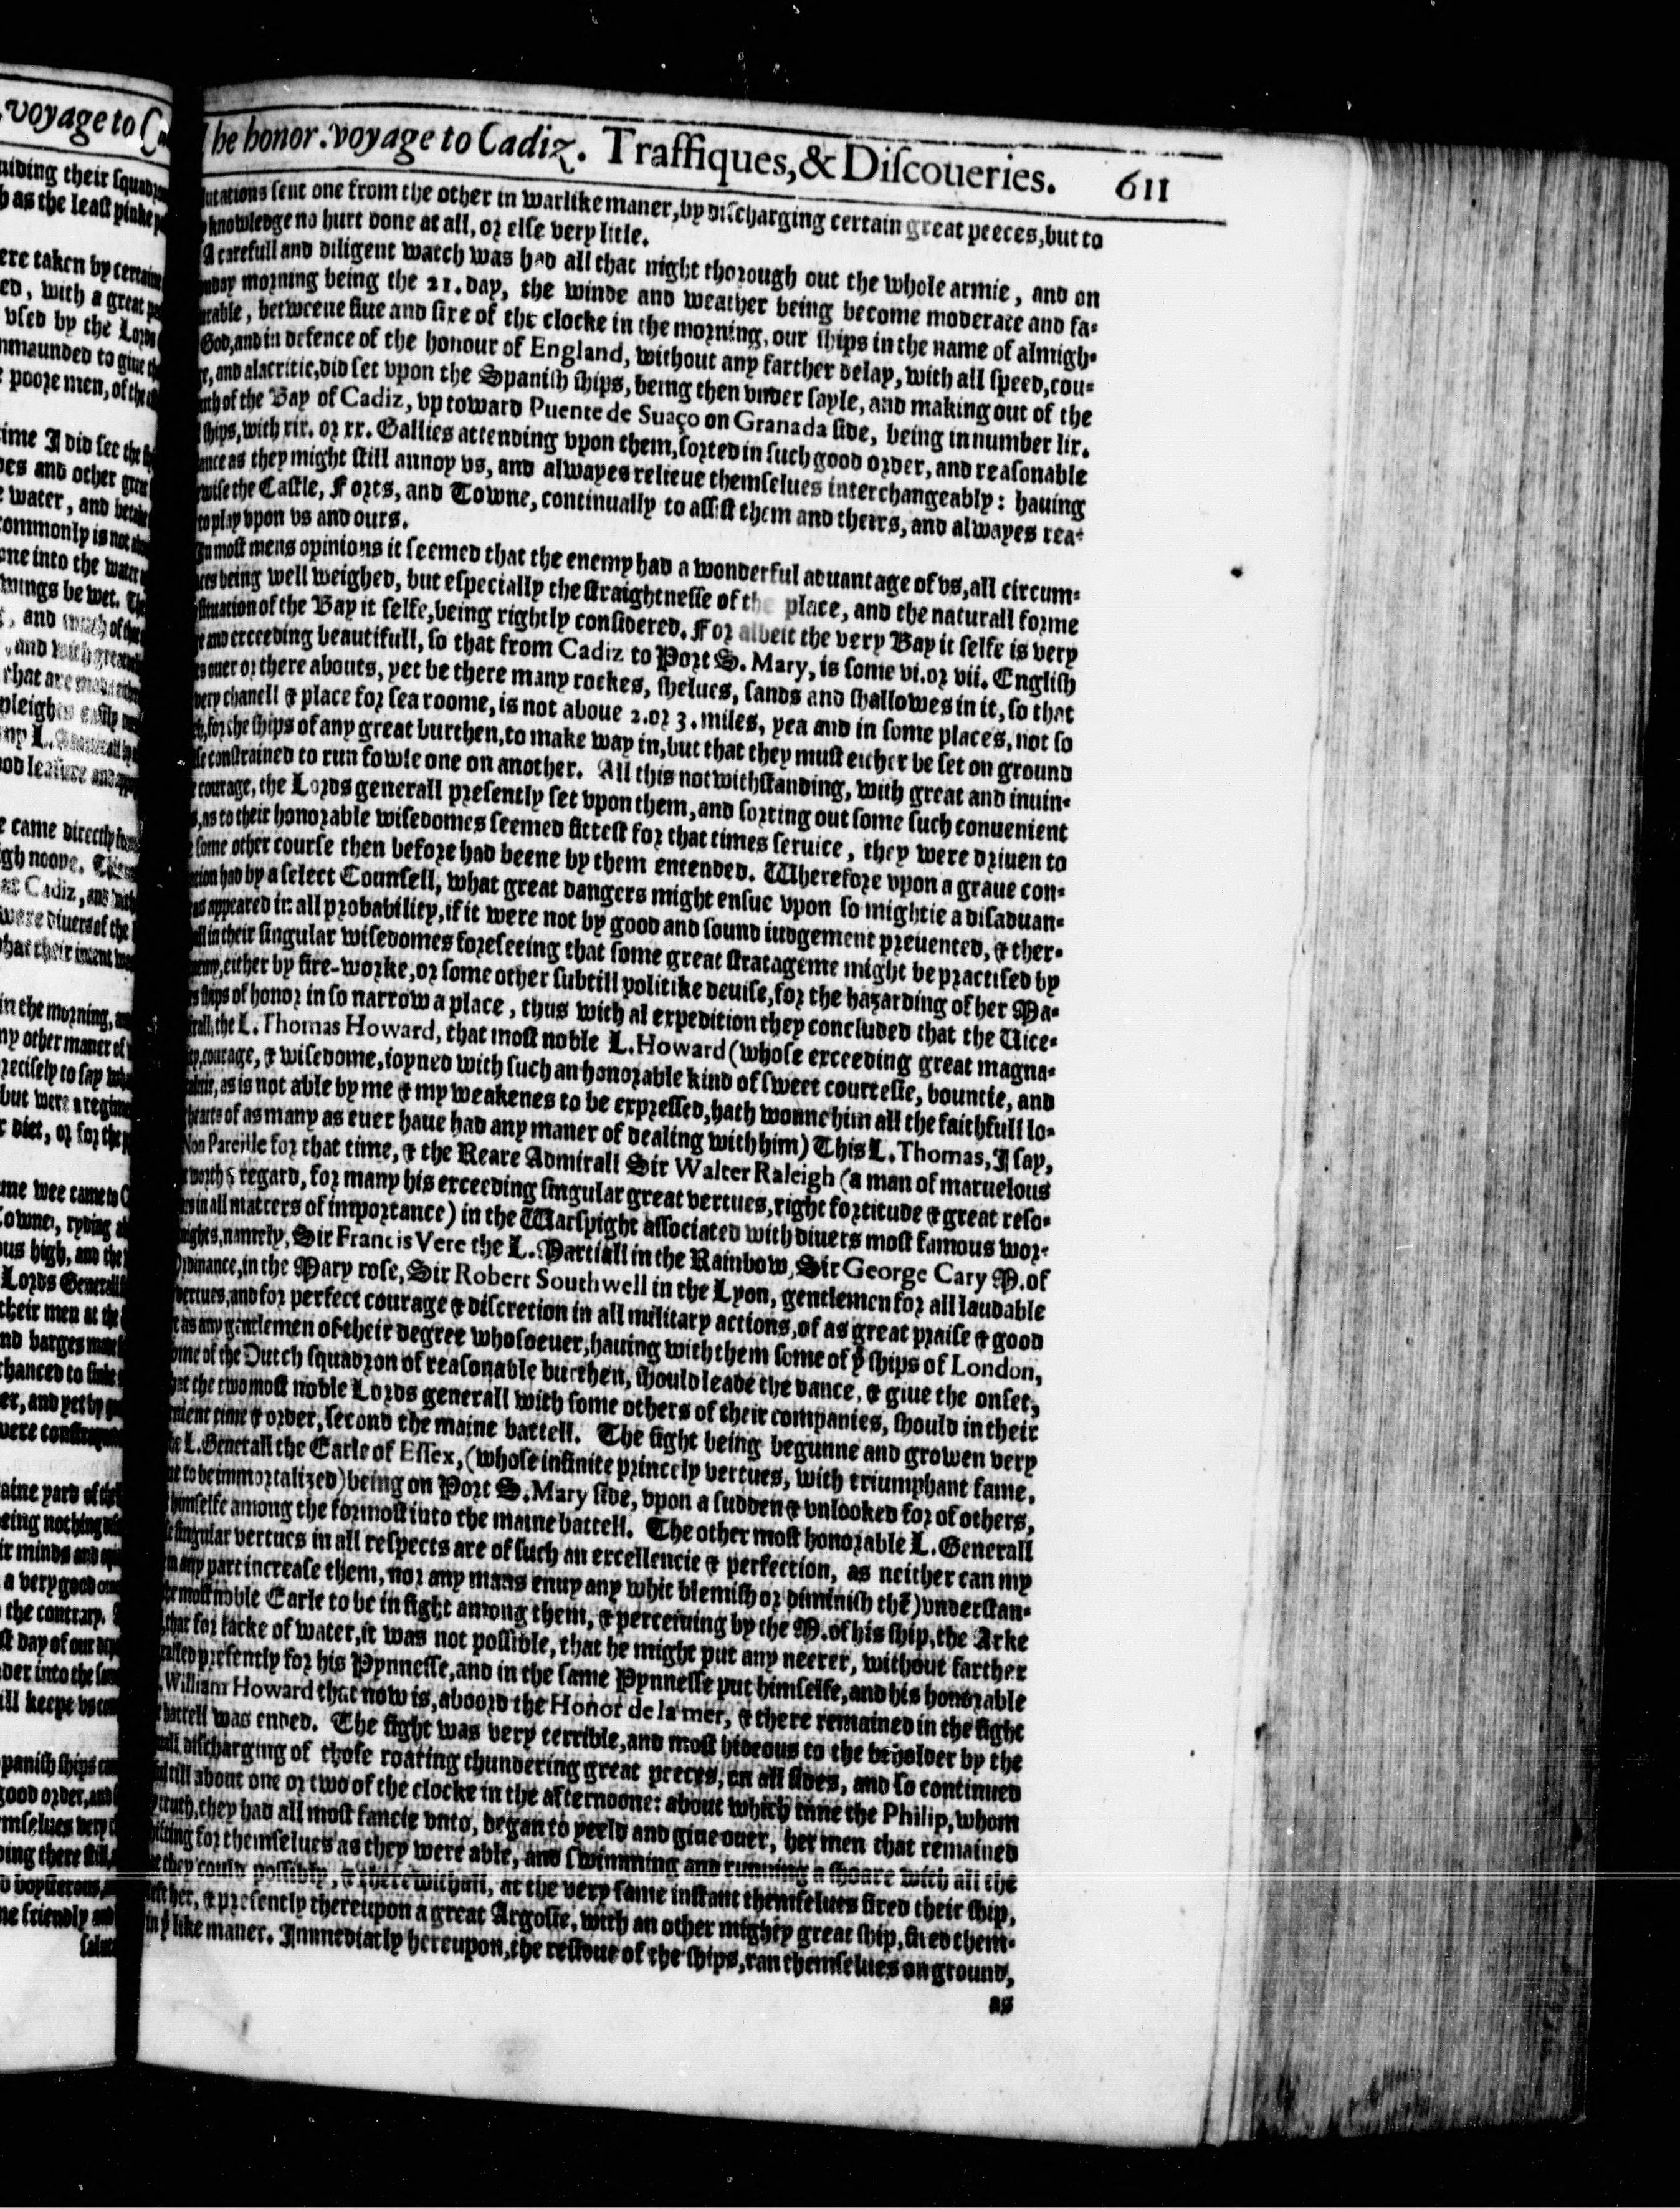 voyage to
uiding their squadron
as the least pinke
ere taken by certaine
ed, with a great
vsed by the Lords
nmaunded to giue
poore men, of the
ime I did see the
oes and other great
water, and
commonly is not
one into the water
wings be wet.
, and much of that
, and with
that are
pleights easily
my L.
good leasure and
came directly
igh noone.
at Cadiz, and
were diuers of the
that their intent was
in the morning,
ny other maner of
recisely to say
but were a
diet, or for the
me wee came to
Towne, ryding
ous high, and the
Lords Generall
their men at the
nd barges
chanced to sinke
er, and yet by
were
aine yard of the
eing nothing
ir minds and
a very good
the contrary.
st day of our
der into the
ill keepe vs
panish ships
good order, and
emselues very
ing there still,
boysterous,
ne friendly and
salu
The honor.voyage to Cadiz. Traffiques,& Discoueries. 611
lutations sent one from the other in warlike maner, by discharging certain great peeces, but to
knowledge no hurt done at all, or else very litle.
A carefull and diligent watch was had all that night thorough out the whole armie, and on
nday morning being the 21. day, the winde and weather being become moderate and fa-
urable, betweene fiue and sixe of the clocke in the morning, our ships in the name of almigh-
God, and in defence of the honour of England, without any farther delay, with all speed, cou-
ge, and alacritie, did set vpon the Spanish ships, being then vnder sayle, and making out of the
uth of the Bay of Cadiz, vp toward Puente de Suaço on Granada side, being in number lix.
ships, with xix. or xx. Gallies attending vpon them, sorted in such good order, and reasonable
ance as they might still annoy vs, and alwayes relieue themselues interchangeably: hauing
wise the Castle, Forts, and Towne, continually to assist them and theirs, and alwayes rea-
to play vpon vs and ours.
In most mens opinions it seemed that the enemy had a wonderful aduantage of vs, all circum-
ces being well weighed, but especially the straightnesse of the place, and the naturall forme
situation of the Bay it selfe, being rightly considered. For albeit the very Bay it selfe is very
ge and exceeding beautifull, so that from Cadiz to Port S. Mary, is some vi. or vii. English
es ouer or there abouts, yet be there many rockes, shelues, sands and shallowes in it, so that
very chanell & place for sea roome, is not aboue 2. or 3. miles, yea and in some places, not so
ch, for the ships of any great burthen, to make way in, but that they must either be set on ground
se constrained to run fowle one on another. All this notwithstanding, with great and inuin-
courage, the Lords generall presently set vpon them, and sorting out some such conuenient
s, as to their honorable wisedomes seemed fittest for that times seruice, they were driuen to
some other course then before had beene by them entended. Wherefore vpon a graue con-
tion had by a select Counsell, what great dangers might ensue vpon so mightie a disaduan-
as appeared in all probability, if it were not by good and sound iudgement preuented, & ther-
all in their singular wisedomes foreseeing that some great stratageme might be practised by
enemy, either by fire-worke, or some other subtill politike deuise, for the hazarding of her Ma-
es ships of honor in so narrow a place, thus with al expedition they concluded that the Uice-
irall, the L. Thomas Howard, that most noble L. Howard (whose exceeding great magna-
ity, courage, & wisedome, ioyned with such an honorable kind of sweet courtesie, bountie, and
ralitie, as is not able by me & my weakenes to be expressed, hath wonne him all the faithfull lo-
hearts of as many as euer haue had any maner of dealing with him) This L. Thomas, I say,
Non Pareille for that time, & the Reare Admirall Sir Walter Raleigh (a man of maruelous
worth & regard, for many his exceeding singular great vertues, right fortitude & great reso-
es in all matters of importance) in the Warspight associated with diuers most famous wor-
knights, namely, Sir Francis Vere the L. Martiall in the Rainbow, Sir George Cary M. of
Ordinance, in the Mary rose, Sir Robert Southwell in the Lyon, gentlemen for all laudable
vertues, and for perfect courage & discretion in all military actions, of as great praise & good
rt as any gentlemen of their degree whosoeuer, hauing with them some of yͤ ships of London,
ome of the Dutch squadron of reasonable burthen, should leade the dance, & giue the onset,
hat the two most noble Lords generall with some others of their companies, should in their
nient time & order, second the maine battell. The fight being begunne and growen very
he L. Generall the Earle of Essex, (whose infinite princely vertues, with triumphant fame,
ue to be immortalized) being on Port S. Mary side, vpon a sudden & vnlooked for of others,
himselfe among the formost into the maine battell. The other most honorable L. Generall
se singular vertues in all respects are of such an excellencie & perfection, as neither can my
in any part increase them, nor any mans enuy any whit blemish or diminish thẽ) vnderstan-
the most noble Earle to be in fight among them, & perceiuing by the M. of his ship, the Arke
, that for lacke of water, it was not possible, that he might put any neerer, without farther
called presently for his Pynnesse, and in the same Pynnesse put himselfe, and his honorable
William Howard that now is, aboord the Honor de la mer, & there remained in the fight
battell was ended. The fight was very terrible, and most hideous to the beholder by the
uall discharging of those roaring thundering great peeces, on all sides, and so continued
till about one or two of the clocke in the afternoone: about which time the Philip, whom
truth, they had all most fancie vnto, began to yeeld and giue ouer, her men that remained
ifting for themselues as they were able, and swimming and running a shoare with all the
they could possibly, & therewithall, at the very same instant themselues fired their ship,
left her, & presently thereupon a great Argosie, with an other mighty great ship, fired them-
in yͤ like maner. Immediatly hereupon, the residue of the ships, ran themselues on ground,
as